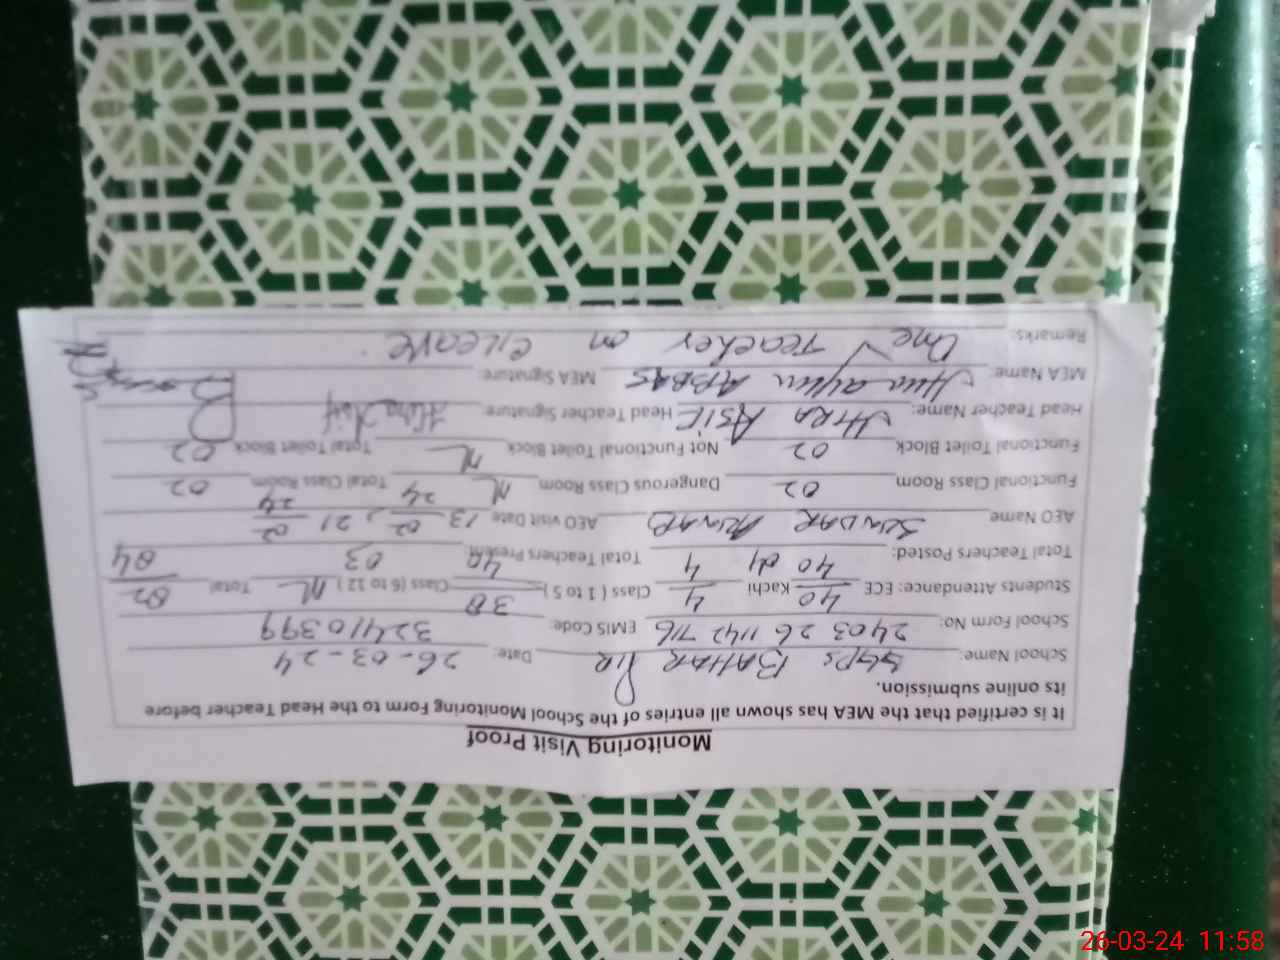 Monitoring Visit Proof
It is certified that the MEA has shown all entries of the School Monitoring Form to the Head Teacher before
its online submission.
School Name: GGPS BAHAR PIR Date: 26-03-24
School Form No: 2403 26 1142 716 EMIS Code: 32410399
Students Attendance: ECE 40/40 Kachi 4/4 Class ( 1 to 5 ) 38/40 Class (6 to 12 ) Total 82/84
Total Teachers Posted: 04 Total Teachers Present: 03
AEO Name AEO visit Date 13/02/24, 21/02/24
Functional Class Room 02 Dangerous Class Room Total Class Room 02
Functional Toilet Block 02 Not Functional Toilet Block Total Toilet Block 02
Head Teacher Name: HIRA ASIF Head Teacher Signature: Hira Asif
MEA Name: Humayun ABBAS MEA Signature:
Remarks: One Teacher on C/Leave
26-03-24 11:58